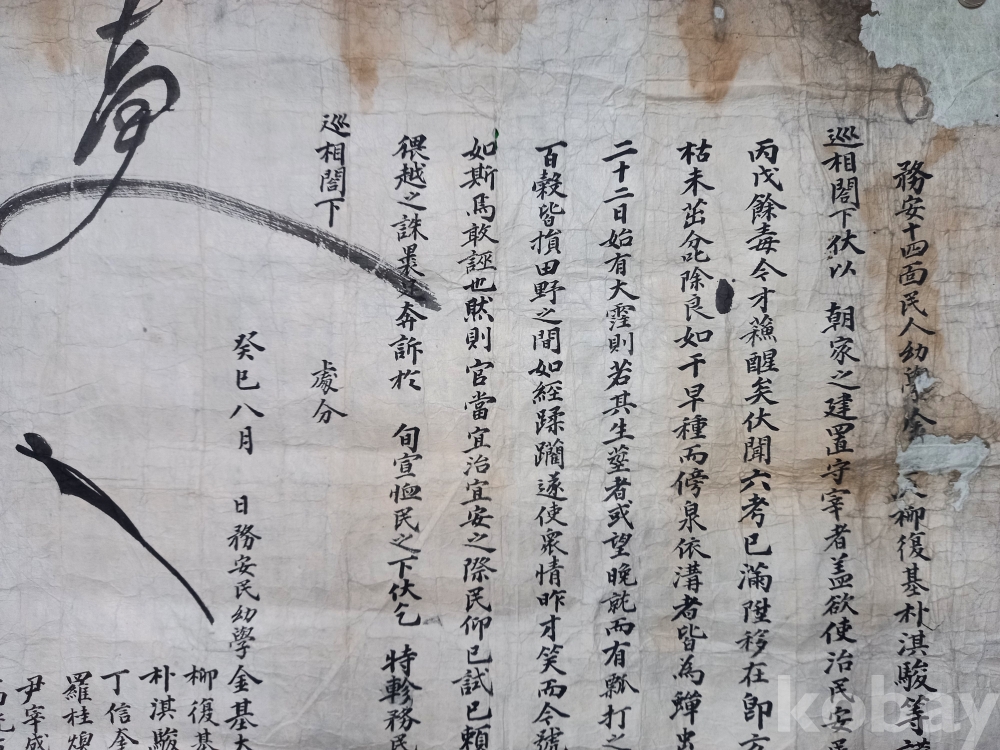 務安十四面民人幼學金 柳復基朴淇駿等
巡相閤下伏以 朝家之建置守宰者盖欲使治民安
丙戊餘毒今才蘓醒矣伏聞六考已滿陞移在卽
枯未茁 除良如干早種而傍泉依溝者皆為蟬
二十二日始有大霪則若其生莖者或望晚 而有瓢打之
百穀皆損田野之間如經蹂躪遂使衆情昨才笑而今號
如斯焉敢誣也然則官當宜治宜安之際民仰已試已賴
猥越之誅 奔訴於 旬宣恤民之下伏乞 特軫務民
巡相閤下
處分
癸巳八月 日務安民幼學金基大
柳復基
朴淇駿
丁信奎
羅桂煥
尹宰成
kobay